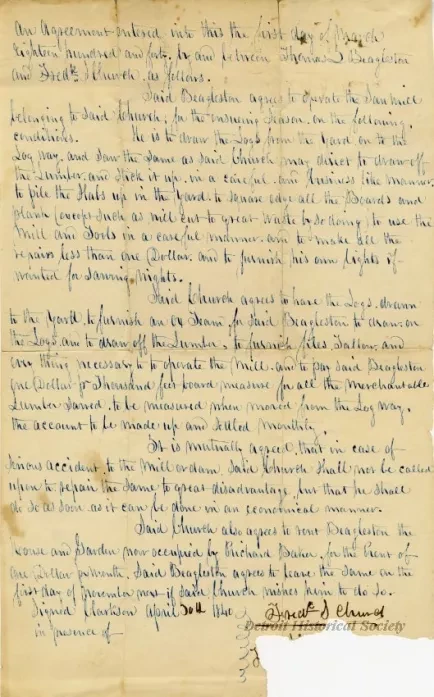 An Agreement entered into this the first day of March
Eighteen hundred and forty, by and between Thomas Beagleston
and Fredk. S Church, as follows.
Said Beagleston agrees to operate the Saw Mill
belonging to Said Church, for the ensuing Season, on the following
conditions. He is to draw the Logs from the Yard on to the
Log way, and Saw the Same as Said Church may direct to draw off
the Lumber, and Stick it up, in a careful, and business like manner,
to pile the Slabs up in the Yard, to square edge all the Boards and
plank except such as will cut to great waste by so doing; to use the
Mill and Tools in a careful manner, and to make all the
repairs less than one Dollar, and to furnish his own lights if
wanted for Sawing Nights.
Said Church agrees to have the Logs drawn
to the Yard, to furnish an Ox Team, for Said Beagleston to draw on
the Logs, and to draw off the Lumber, to furnish files, Tallow, and
every thing necessary to to operate the Mill, and to pay said Beagleston
one Dollar pr Thousand feet board measure for all the Merchantable
Lumber Sawed, to be measured when moved from the Log way,
the account to be made up and Settled Monthly.
It is mutually agreed, that in case of
serious accident, to the Mill or dam, Said Church shall not be called
upon to repair the same to great disadvantage, but that he shall
do so as soon as it can be done in an economical manner.
Said Church also agrees to rent Beagleston the
House and Garden now occupied by Richard Baker, for the Rent of
one Dollar pr month, Said Beagleston agrees to leave the Same on the
first day of November next if Said Church wishes him to do so.
Signed Clarkson April 30th 1840
Fredk S Church
in presence of
Detroit Historical Society